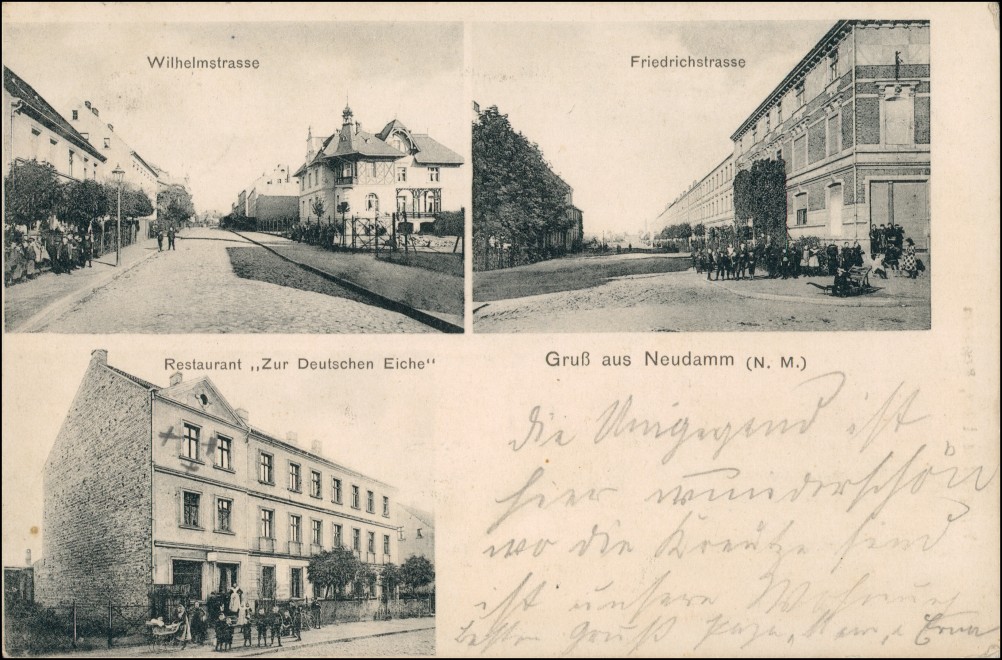 Wilhelmstrasse
Friedrichstrasse
Restaurant „Zur Deutschen Eiche"
Gruß aus Neudamm (N. M.)
die Umgegend ist
hier wunderschön
wo die Kreutze sind
ist unsere Wohnung
Besten Gruß Papa, Mama, Erna